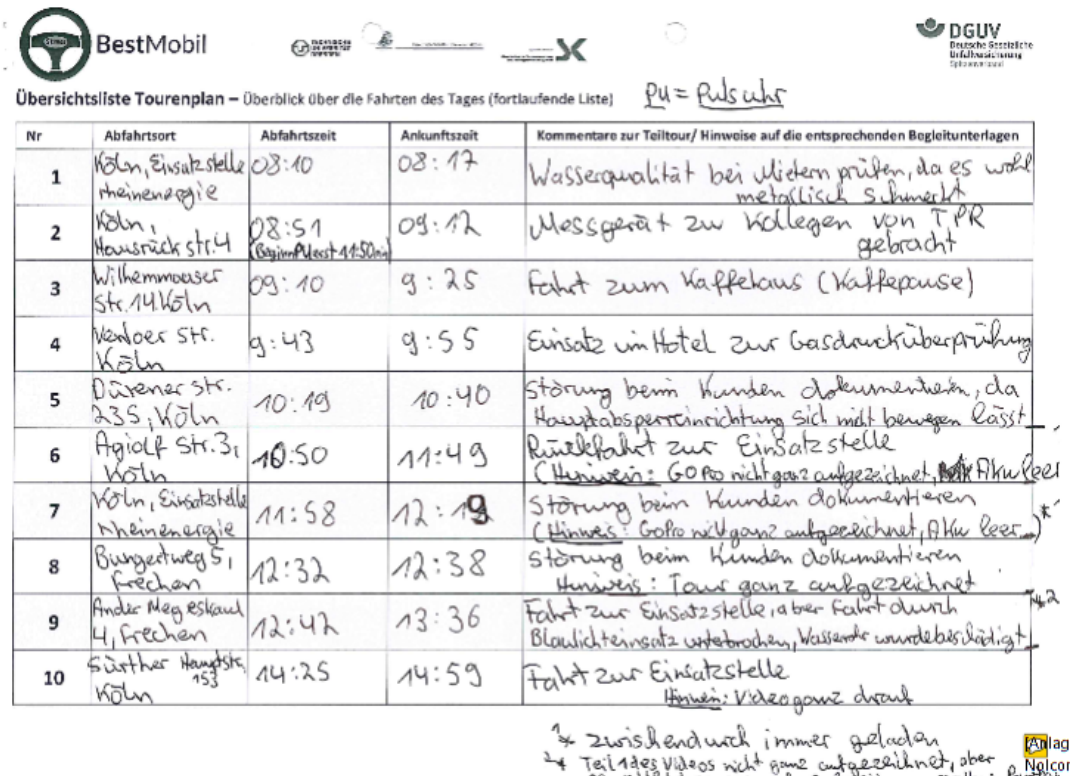 BestMobil
DGUV
Deutsche Gesetzliche
Unfallversicherung
Spitzenverband
Übersichtsliste Tourenplan – Überblick über die Fahrten des Tages (fortlaufende Liste) PU = Pulsuhr
Nr Abfahrtsort Abfahrtszeit Ankunftszeit Kommentare zur Teiltour/ Hinweise auf die entsprechenden Begleitunterlagen
1 Köln, Einsatzstelle 08:10 08:17 Wasserqualität bei Mietern prüfen, da es wohl
rheinenergie metallisch schmeckt
2 Köln, 08:51 09:12 Messgerät zu Kollegen von TPR
Hausrück str.4 (Beginn PU erst 11:50min) gebracht
3 09:10 9:25 Fahrt zum Kaffehaus (Kaffepause)
Str. 14 Köln
4 Venloer Str. 9:43 9:55 Einsatz im Hotel zur Gasdrucküberprüfung
Köln
5 Dürener Str. 10:19 10:40 Störung beim Kunden dokumentieren, da
235, Köln Hauptabsperreinrichtung sich nicht bewegen lässt
6 Agiolf Str.3, 10:50 11:49 Rückfahrt zur Einsatzstelle
Köln (Hinweis: GoPro nicht ganz aufgezeichnet, Aku leer
7 Köln, Einsatzstelle 11:58 12:19 Störung beim Kunden dokumentieren
rheinenergie (Hinweis: GoPro nicht ganz aufgezeichnet, Aku leer) *1
8 5, 12:32 12:38 Störung beim Kunden dokumentieren
Frechen Hinweis: Tour ganz aufgezeichnet
9 12:42 13:36 Fahrt zur Einsatzstelle, aber Fahrt durch *2
4, Frechen Blaulichteinsatz unterbrochen, Wasserrohr wurde beschädigt
10 Sürther Hauptstr. 14:25 14:59 Fahrt zur Einsatzstelle
153 Köln Hinweis: Video ganz drauf
1* zwischendurch immer geladen
2* Teil 1 des Videos nicht ganz aufgezeichnet, aber